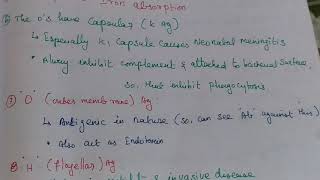 Iron absorption
The O's have Capsular (k ag)
↳ Especially K1 Capsule causes Neonatal Meningitis
• inhibit complement & attached to bacterial surface,
So, thus inhibit phagocytosis
⑦ "O" (outer membrane) Ag:
↳ Antigenic in nature (so, can see "Ab" against this)
• Also act as Endotoxin
8. "H" (flagellar) Ag
& invasive disease